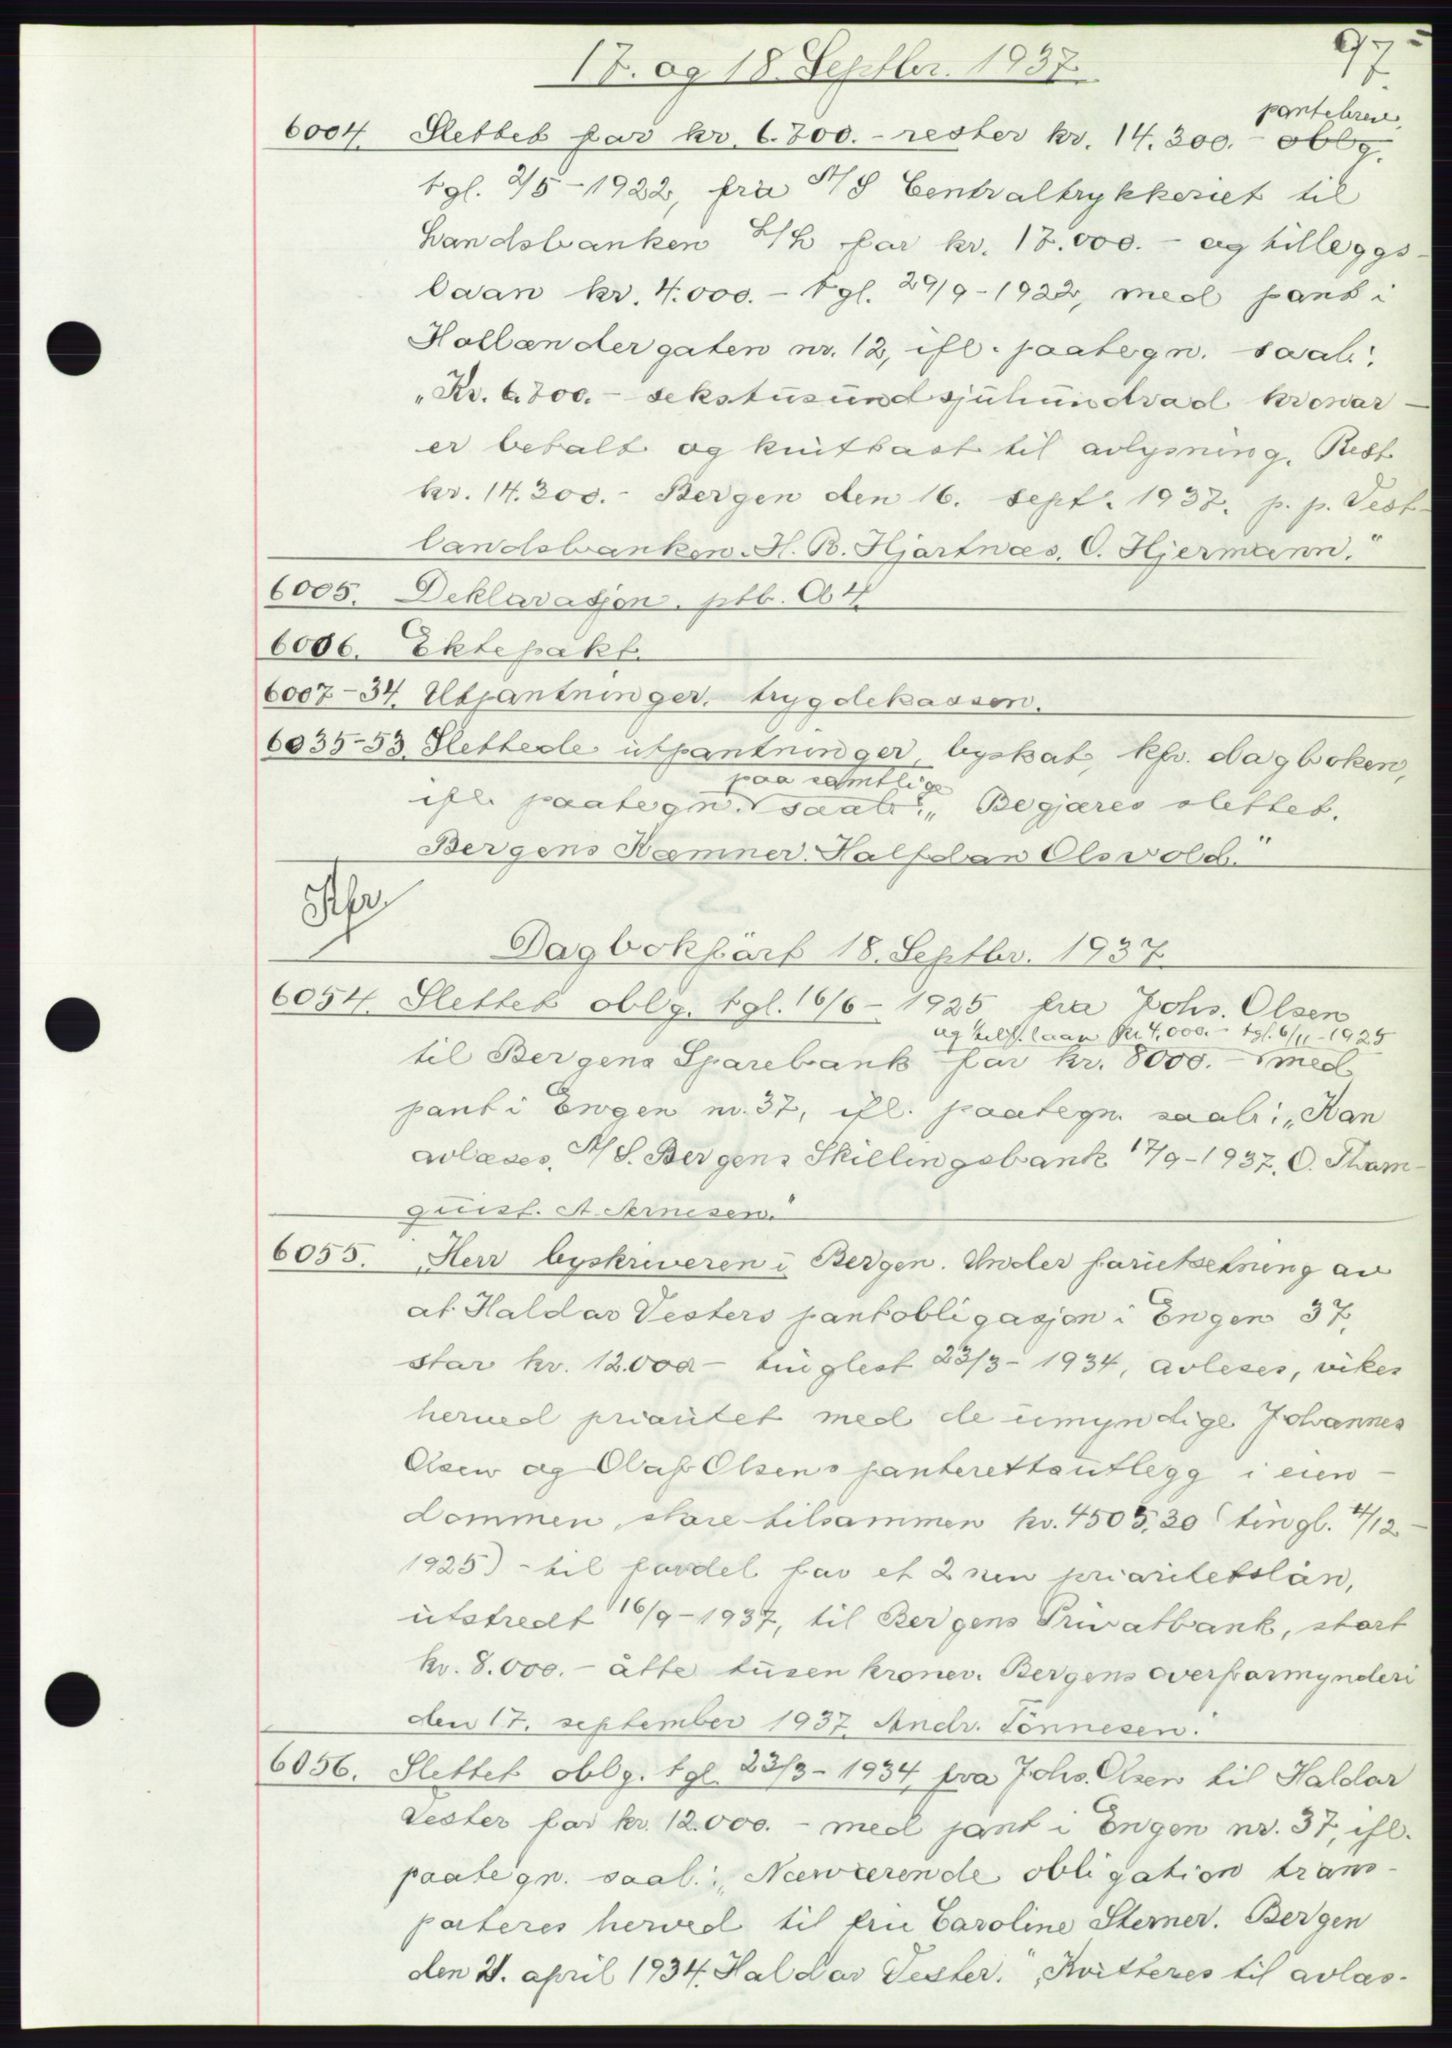 97
17. og 18. Septbr. 1937.
pantebrev
6004. Slettet for kr. 6.700.- rester kr. 14.300.- oblg.
tgl. 2/5-1922, fra A/S Centraltrykkeriet til
Landsbanken L/L for kr. 17.000.- og tilleggs-
laan kr. 4.000.- tgl. 29/9-1922, med pant i
Hollendergaten nr. 12, ifl. paategn. saal.:
„Kr. 6.700.- sekstusundsjuhundrad kronar -
er betalt og kvittast til avlysning. Rest
kr. 14.300.- Bergen den 16. sept. 1937. p. p. Vest-
landsbanken. H. B. Hjartnæs. O. Hjermann."
6005. Deklarasjon. ptb. A 4
6006. Ektepakt.
6007-34. Utpantninger. trygdekassen.
6035-53. Slettede utpantninger, byskat, kfr. dagboken,
paa samtlige
ifl. paategn. saal.: „Begjæres slettet.
Bergens Kæmner. Halfdan Olsvold."
Kfr.
Dagbokført 18. Septbr. 1937.
6054. Slettet oblg. tgl. 16/6-1925 fra Johs. Olsen
og till. laan kr. 4.000.- tgl. 6/11-1925
til Bergens Sparebank for kr. 8000.- med
pant i Engen nr. 37, ifl. paategn. saal.: „Kan
avlæses. A/S. Bergens Skillingsbank 17/9-1937. O. Tham-
quist. A. Arnesen."
6055. „Herr byskriveren i Bergen. Under forutsetning av
at Haldor Vesters pantobligasjon i Engen 37,
stor kr. 12.000.- tinglest 23/3-1934, avleses, vikes
herved prioritet med de umyndige Johannes
Olsen og Olaf Olsens panterettsutlegg i eien-
dommen, store tilsammen kr. 4505,30 (tingl. 4/12-
1925) - til fordel for et 2nen prioritetslån,
utstredt 16/9-1937, til Bergens Privatbank, stort
kr. 8.000.- åtte tusen kroner. Bergens overformynderi
den 17. september 1937. Andr. Tønnesen."
6056. Slettet oblg. tgl. 23/3-1934 fra Johs. Olsen til Haldor
Vester for kr. 12.000.- med pant i Engen nr. 37, ifl.
paategn. saal.: „Nærværende obligation trans-
porteres herved til fru Caroline Sterner. Bergen
den 21. april 1934. Haldor Vester." „Kvitteres til avlæs-